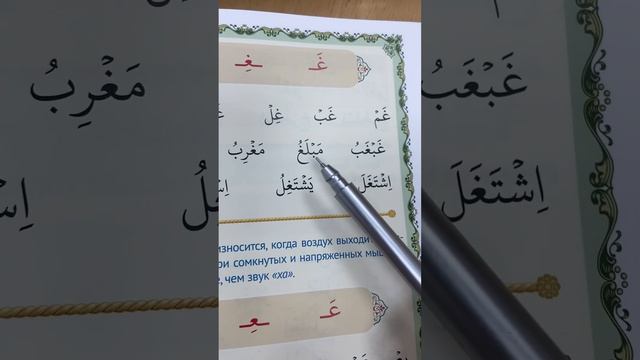 غَـ ـغِـ
غَمْ غَبْ غِلْ
غَبْغَبُ مَبْلَغُ مَغْرِبُ
اِشْتَغَلَ يَشْتَغِلُ
износится, когда воздух выходит
ри сомкнутых и напряженных мы
, чем звук «ха».
عَـ ـعِـ